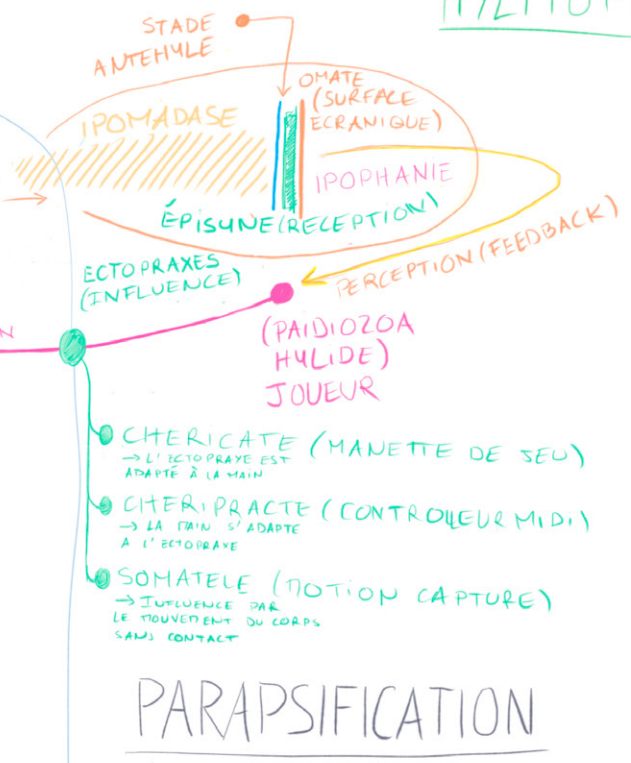 STADE
ANTEHYLE
OMATE
(SURFACE
ECRANIQUE)
IPOMADASE
IPOPHANIE
ÉPISUNE (RECEPTION)
PERCEPTION (FEEDBACK)
ECTOPRAXES
(INFLUENCE)
N
(PAIDIOZOA
HYLIDE)
JOUEUR
CHERICATE (MANETTE DE JEU)
→ L'ECTOPRAXE EST
ADAPTÉ À LA MAIN
CHERIPRACTE (CONTROLLEUR MIDI)
→ LA MAIN S'ADAPTE
A L'ECTOPRAXE
SOMATELE (MOTION CAPTURE)
→ INFLUENCE PAR
LE MOUVEMENT DU CORPS
SANS CONTACT
PARAPSIFICATION